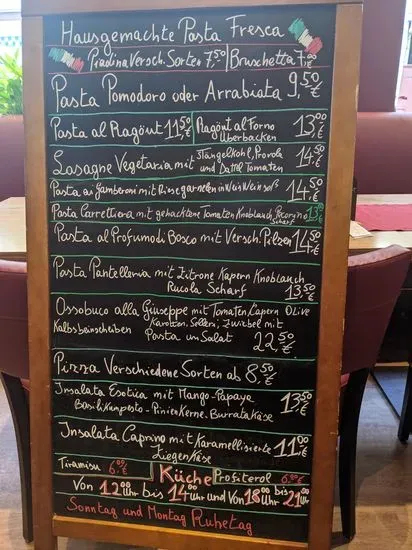 Hausgemachte Pasta Fresca
Piadina Versch. Sorten 7,50 / Bruschetta 7,00 €
Pasta Pomodoro oder Arrabiata 9,50 €
Pasta al Ragöut 11,50 €
Ragöut al Forno Überbacken 13,00 €
Lasagne Vegetaria mit Stängelkohl, Provola und Dattel Tomaten 14,50 €
Pasta ai Gamberoni mit Riesegarnelen in Wein Weinsoß 14,50 €
Pasta Carrettiera mit gehackten Tomaten Knoblauch Pecorino Scharf 13 €
Pasta al Profumo di Bosco mit Versch. Pilzen 14,50 €
Pasta Pantelleria mit Zitrone Kapern Knoblauch
Rucola Scharf 13,50 €
Ossobuco alla Giuseppe mit Tomaten, Kapern Olive
Kalbsbeinscheiben Karotten, Sellerie, Zwiebel mit
Pasta un Salat 22,50 €
Pizza Verschiedene Sorten ab 8,50 €
Insalata Esotica mit Mango-Papaya
Basilikumpesto-Pinienkerne. Burrata Käse 13,50 €
Insalata Caprino mit Karamellisierte
Ziegenkäse 11,00 €
Tiramisu 6,00 € Küche Profiterol 6,00 €
Von 12,00 Uhr bis 14,00 Uhr und Von 18,00 Uhr bis 21,00 Uhr
Sonntag und Montag Ruhetag